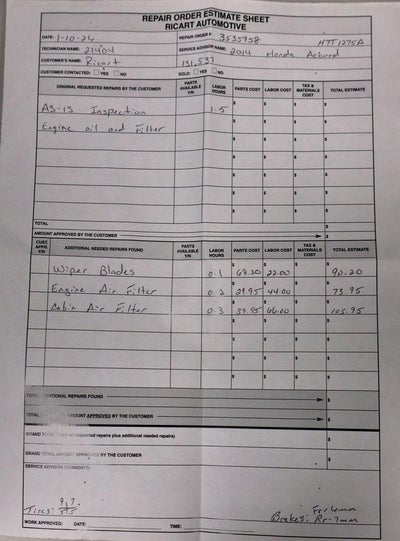 REPAIR ORDER ESTIMATE SHEET
RICART AUTOMOTIVE
DATE: 1-10-24 REPAIR ORDER#: 3535958 HTT1275A
TECHNICIAN NAME: 21404 SERVICE ADVISOR NAME: 2014 Honda Accord
CUSTOMER'S NAME: Ricart 131,537
CUSTOMER CONTACTED: YES NO SOLD: YES NO
ORIGINAL REQUESTED REPAIRS BY THE CUSTOMER PARTS AVAILABLE Y/N LABOR HOURS PARTS COST LABOR COST TAX & MATERIALS COST TOTAL ESTIMATE
AS-IS Inspection 1.5
Engine oil and Filter
TOTAL
AMOUNT APPROVED BY THE CUSTOMER
CUST. APPR. Y/N ADDITIONAL NEEDED REPAIRS FOUND PARTS AVAILABLE Y/N LABOR HOURS PARTS COST LABOR COST TAX & MATERIALS COST TOTAL ESTIMATE
Wiper Blades 0.1 68.20 22.00 90.20
Engine Air Filter 0.2 29.95 44.00 73.95
Cabin Air Filter 0.3 39.95 66.00 105.95
TOTAL ADDITIONAL REPAIRS FOUND
AMOUNT APPROVED BY THE CUSTOMER
GRAND TOTAL requested repairs plus additional needed repairs)
GRAND TOTAL AMOUNT APPROVED BY THE CUSTOMER
SERVICE ADVISOR COMMENTS:
Tires: 9,7 Fr-6mm
5,5 Brakes: Rr-7mm
WORK APPROVED: DATE: TIME: